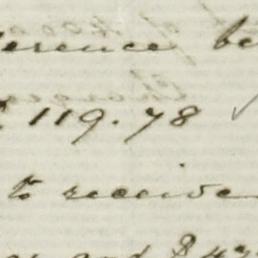 erence be
119.78
to receive
and $